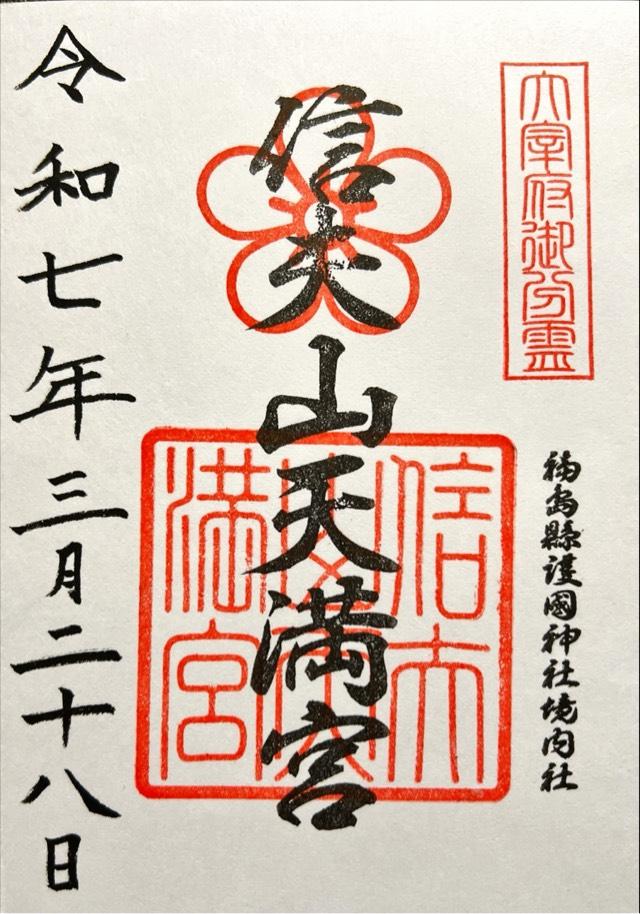 大宰府御分霊
福島縣護國神社境内社
信夫山天満宮
信夫山天満宮
令和七年三月二十八日